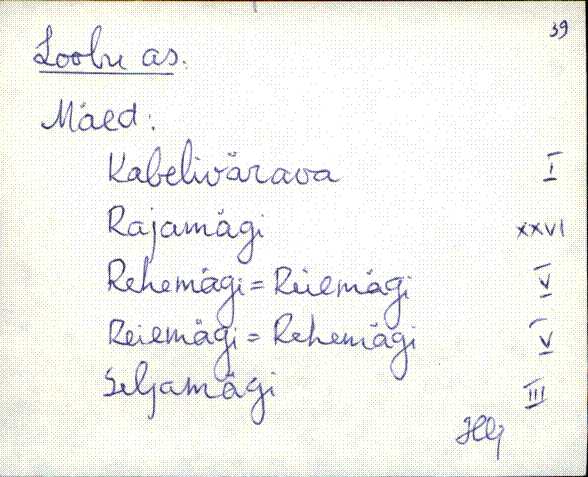 39
Loobu as.
Mäed:
Kabelivärava I
Rajamägi XXVI
Rehemägi = Reiemägi V
Reiemägi = Rehemägi V
Seljamägi III